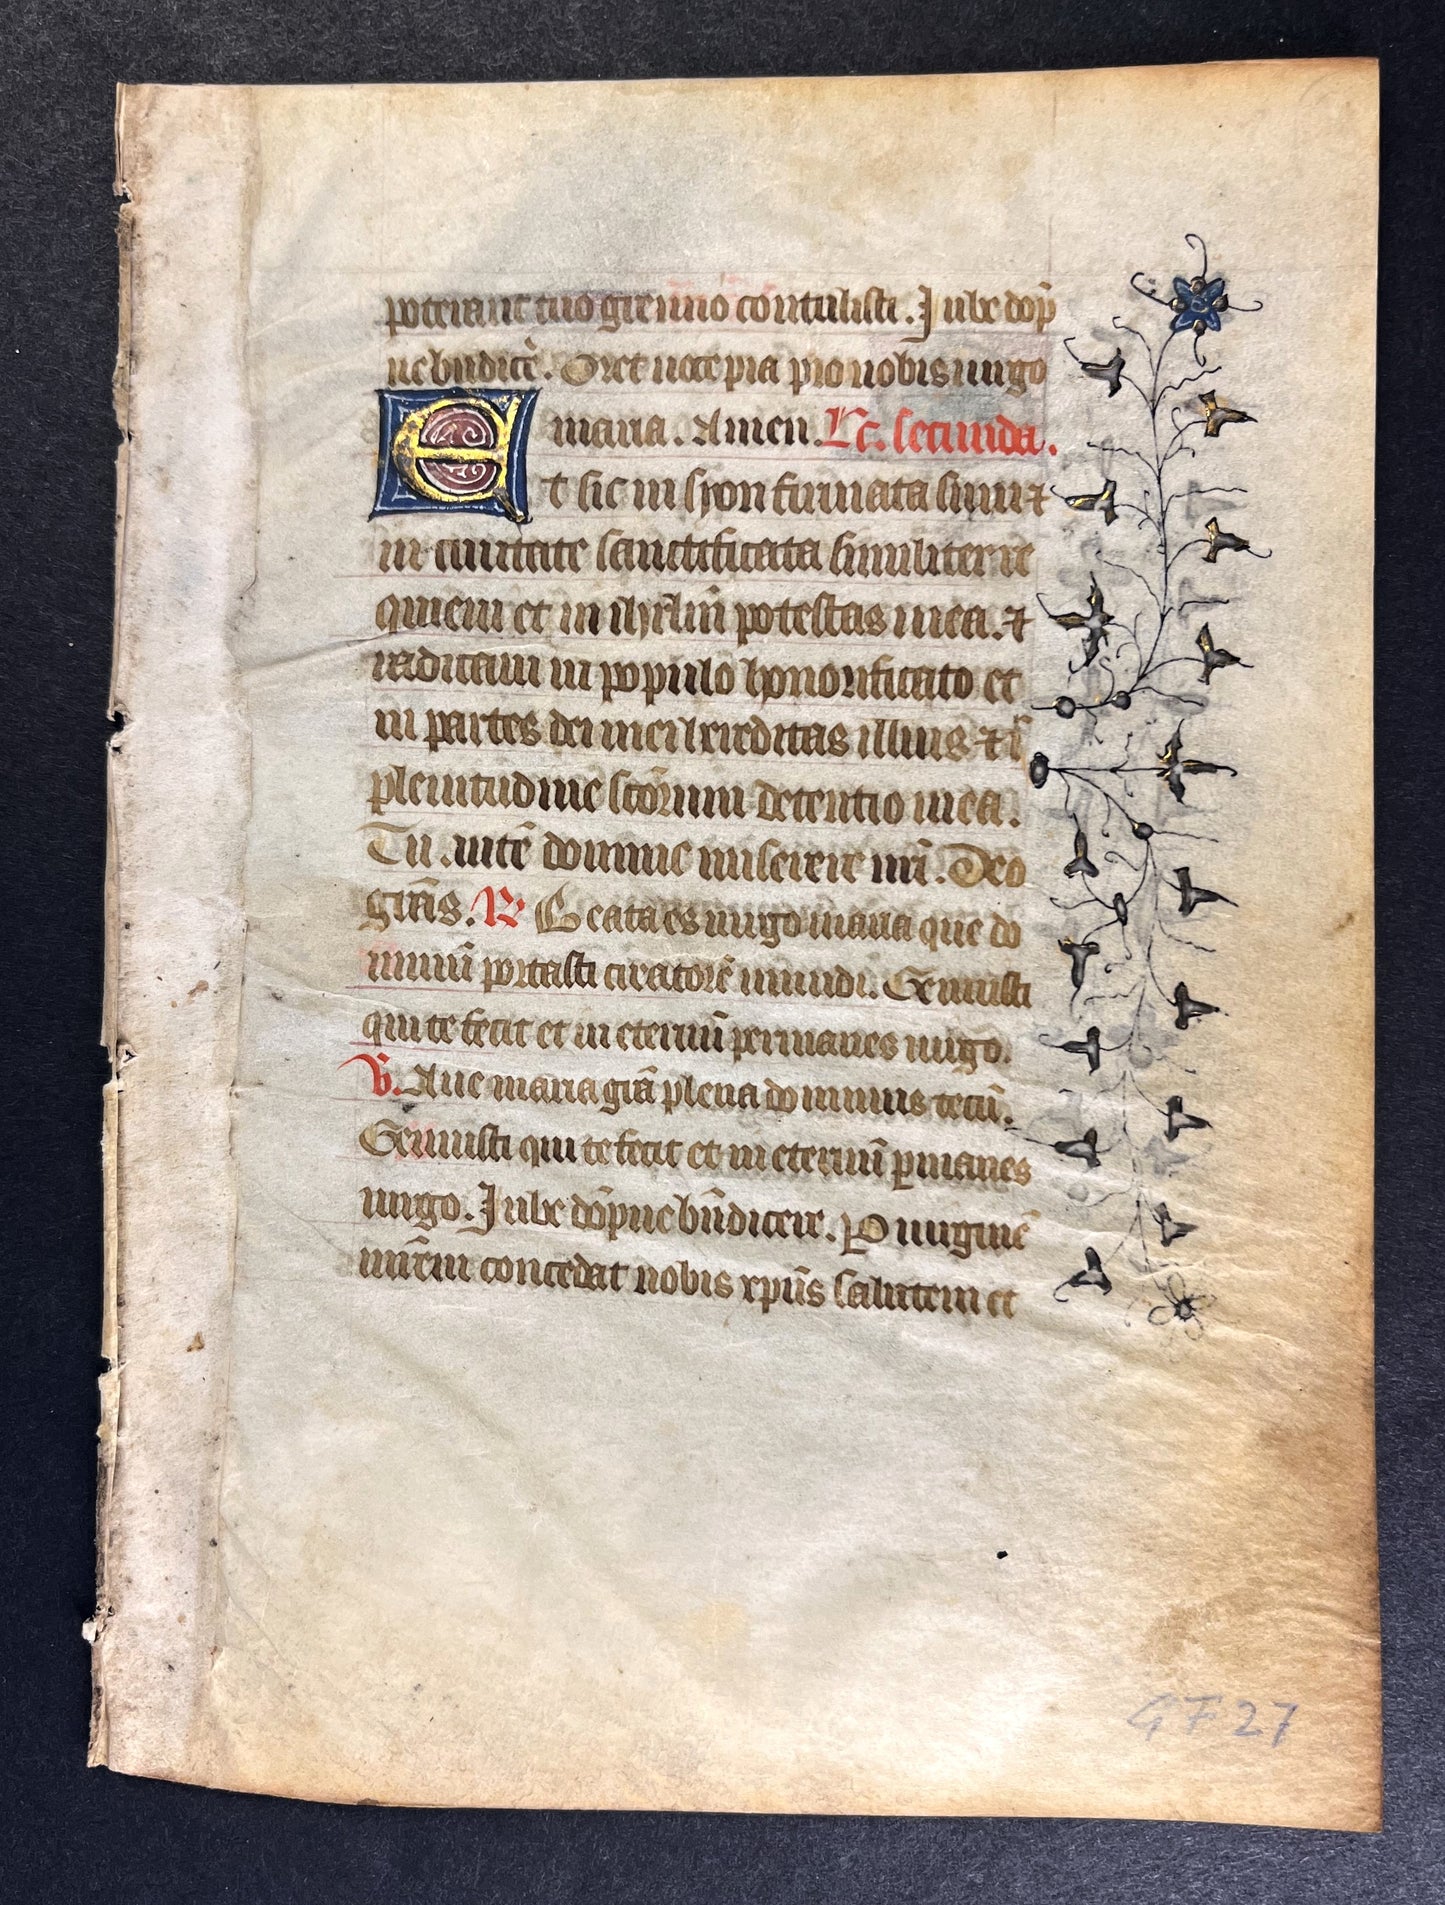 poterant tuo gremio contulisti. Jube dop̄
ne bn̄dicē. Oret uoce pia pro nobis uirgo
maria. Amen. Lc̄. secunda.
Et sic in syon firmata sum ⁊
in ciuitate sanctificata similiter re
quieui et in ihrl̄m potestas mea. ⁊
radicaui in populo honorificato et
in partes dei mei hereditas illius ⁊ ī
plenitudine scōrum detentio mea.
Tu. autē domine miserere mī. Deo
grās. ℟ Beata es uirgo maria que do
minū portasti creatorē mundi. Genuisti
qui te fecit et in eternū permanes uirgo.
℣. Aue maria grā plena dominus tecū.
Genuisti qui te fecit et in eternū ꝑmanes
uirgo. Jube dōpne bn̄dicere. P uirginē
mr̄em concedat nobis xpūs salutem et
GF 27